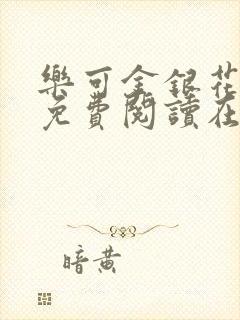 樂可金銀花
免費閱讀在
暗黄